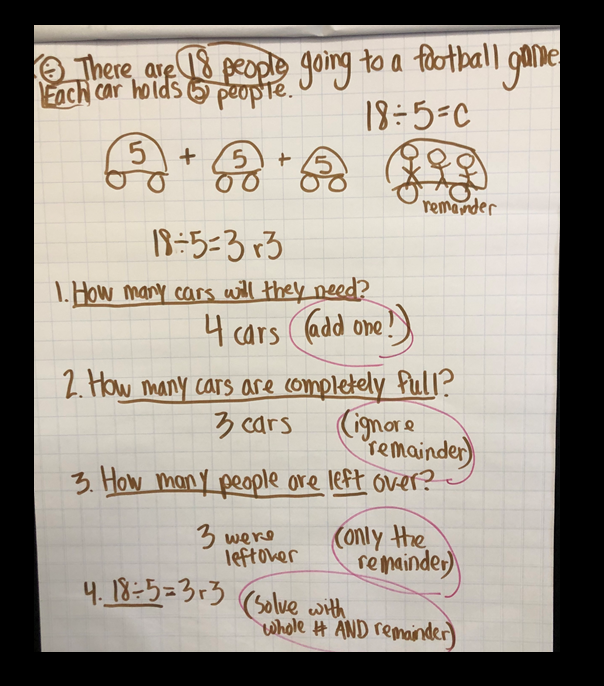 ÷ There are 18 people going to a football game.
Each car holds 5 people.
18÷5=C
5 + 5 + 5
remainder
18÷5=3 r3
1. How many cars will they need?
4 cars (add one!)
2. How many cars are completely full?
3 cars (ignore
remainder)
3. How many people are left over?
3 were
leftover
(only the
remainder)
4. 18÷5=3r3
(solve with
whole # AND remainder)